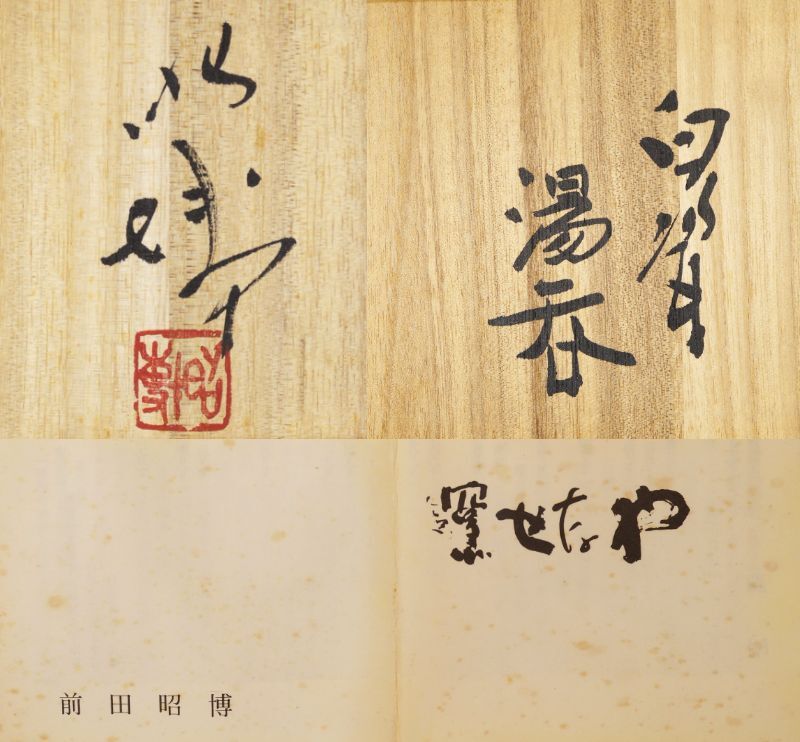 白瓷
湯呑
昭博
やなせ窯
前田昭博